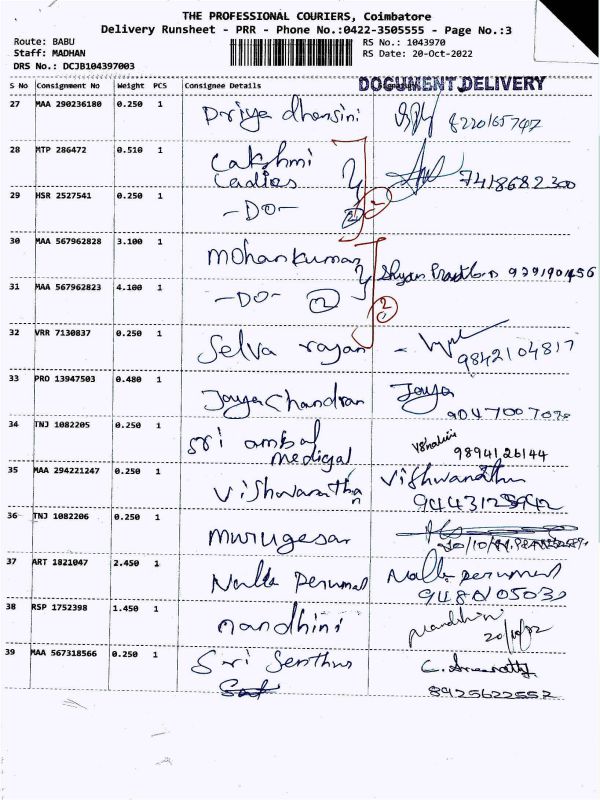 THE PROFESSIONAL COURIERS, Coimbatore
Delivery Runsheet - PRR - Phone No.:0422-3505555 - Page No.:3
Route: BABU RS No.: 1043970
Staff: MADHAN RS Date: 20-Oct-2022
DRS No.: DCJB104397003
S No Consignment No Weight PCS Consignee Details DOCUMENT DELIVERY
27 MAA 290236180 0.250 1 Priya dharsini
28 MTP 286472 0.510 1 Lakshmi
Ladies 7418682300
29 HSR 2527541 0.250 1 -DO- 2 2
30 MAA 567962828 3.100 1 Mohan kumar
31 MAA 567962823 4.100 1 -DO- 2 2
32 VRR 7130837 0.250 1 Selva rajan
9842104817
33 PRO 13947503 0.480 1 Jaya Chandran Jaya
9047007078
34 TNJ 1082205 0.250 1 Sri ambal
medical 9894126144
35 MAA 294221247 0.250 1 Vishwanathan Vishwanathan
36 TNJ 1082206 0.250 1 Murugesan
37 ART 1821047 2.450 1 Nalla Perumal Nalla perumal
38 RSP 1752398 1.450 1 nandhini Nandhini
39 MAA 567318566 0.250 1 Sri Senthur
8925622557